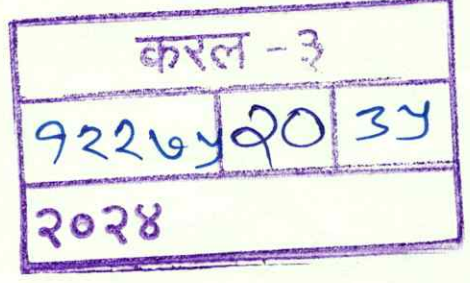 करल - ३
१२२७५ २० ३५
२०२४